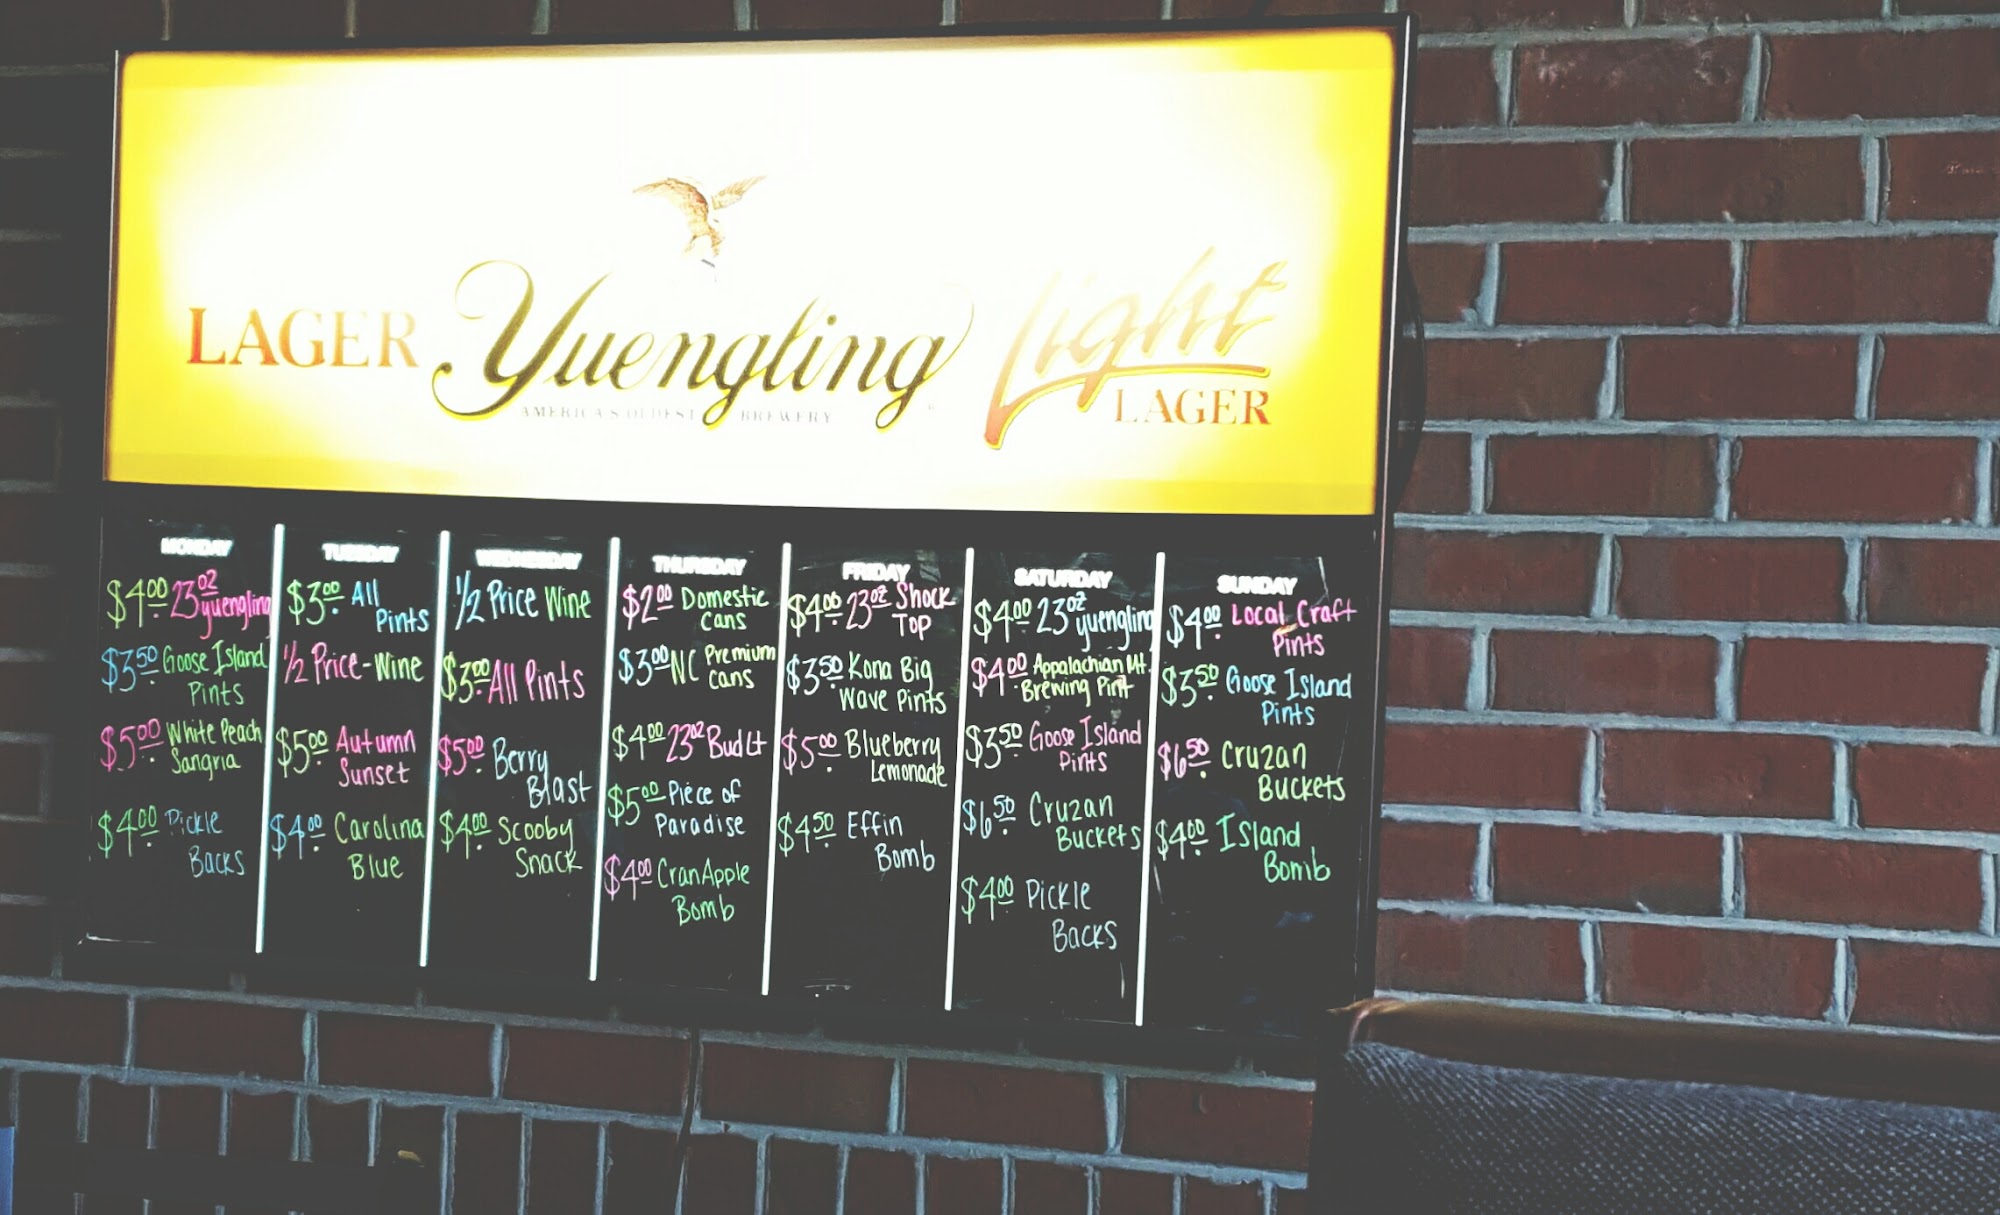 LAGER Yuengling Light
LAGER
AMERICA'S OLDEST BREWERY
MONDAY
$4.00 23oz
yuengling
$3.50 Goose Island
Pints
$5.00 White Peach
Sangria
$4.00 Pickle
Backs
TUESDAY
$3.00 All
Pints
1/2 Price-Wine
$5.00 Autumn
Sunset
$4.00 Carolina
Blue
WEDNESDAY
1/2 Price Wine
$3.00 All Pints
$5.00 Berry
Blast
$4.00 Scooby
Snack
THURSDAY
$2.00 Domestic
cans
$3.00 NC Premium
cans
$4.00 23oz Bud Lt
$5.00 Piece of
Paradise
$4.00 CranApple
Bomb
FRIDAY
$4.00 23oz Shock
TOP
$3.50 Kona Big
Wave Pints
$5.00 Blueberry
Lemonade
$4.50 Effin
Bomb
SATURDAY
$4.00 23oz
yuengling
$4.00 Appalachian Mt.
Brewing Pint
$3.50 Goose Island
Pints
$6.50 Cruzan
Buckets
$4.00 Pickle
Backs
SUNDAY
$4.00 Local Craft
Pints
$3.50 Goose Island
Pints
$6.50 Cruzan
Buckets
$4.00 Island
Bomb